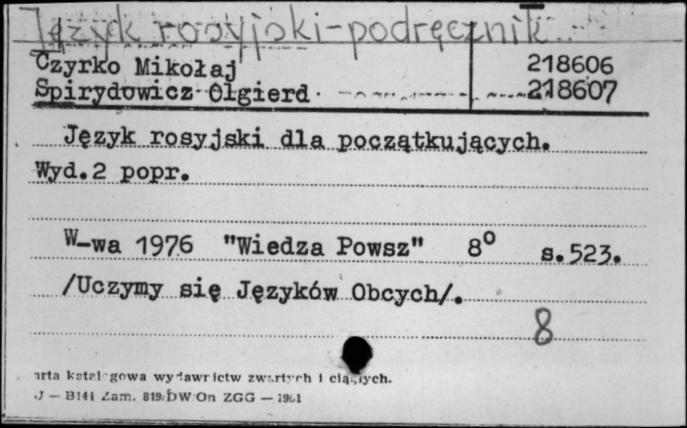 Język rosyjski-podręcznik
Czyrko Mikołaj 218606
Spirydowicz Olgierd 218607
Język rosyjski dla początkujących.
Wyd.2 popr.
W-wa 1976 "Wiedza Powsz" 8° s.523.
/Uczymy się Języków Obcych/.
8
arta katalogowa wydawnictw zwartych i ciągłych.
J — B141 Zam. 819/DW/On ZGG —